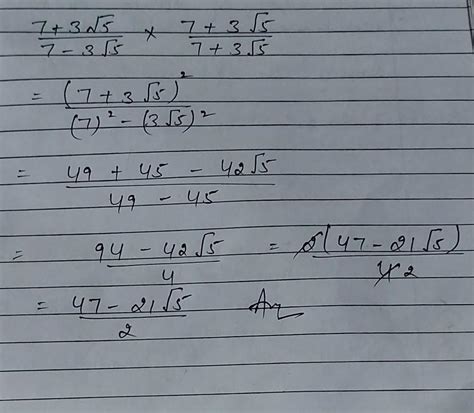 (7 + 3√5)/(7 - 3√5) × (7 + 3√5)/(7 + 3√5)
= (7 + 3√5)²/((7)² - (3√5)²)
= (49 + 45 - 42√5)/(49 - 45)
= (94 - 42√5)/4 = 2(47 - 21√5)/4 2
= (47 - 21√5)/2 Ans